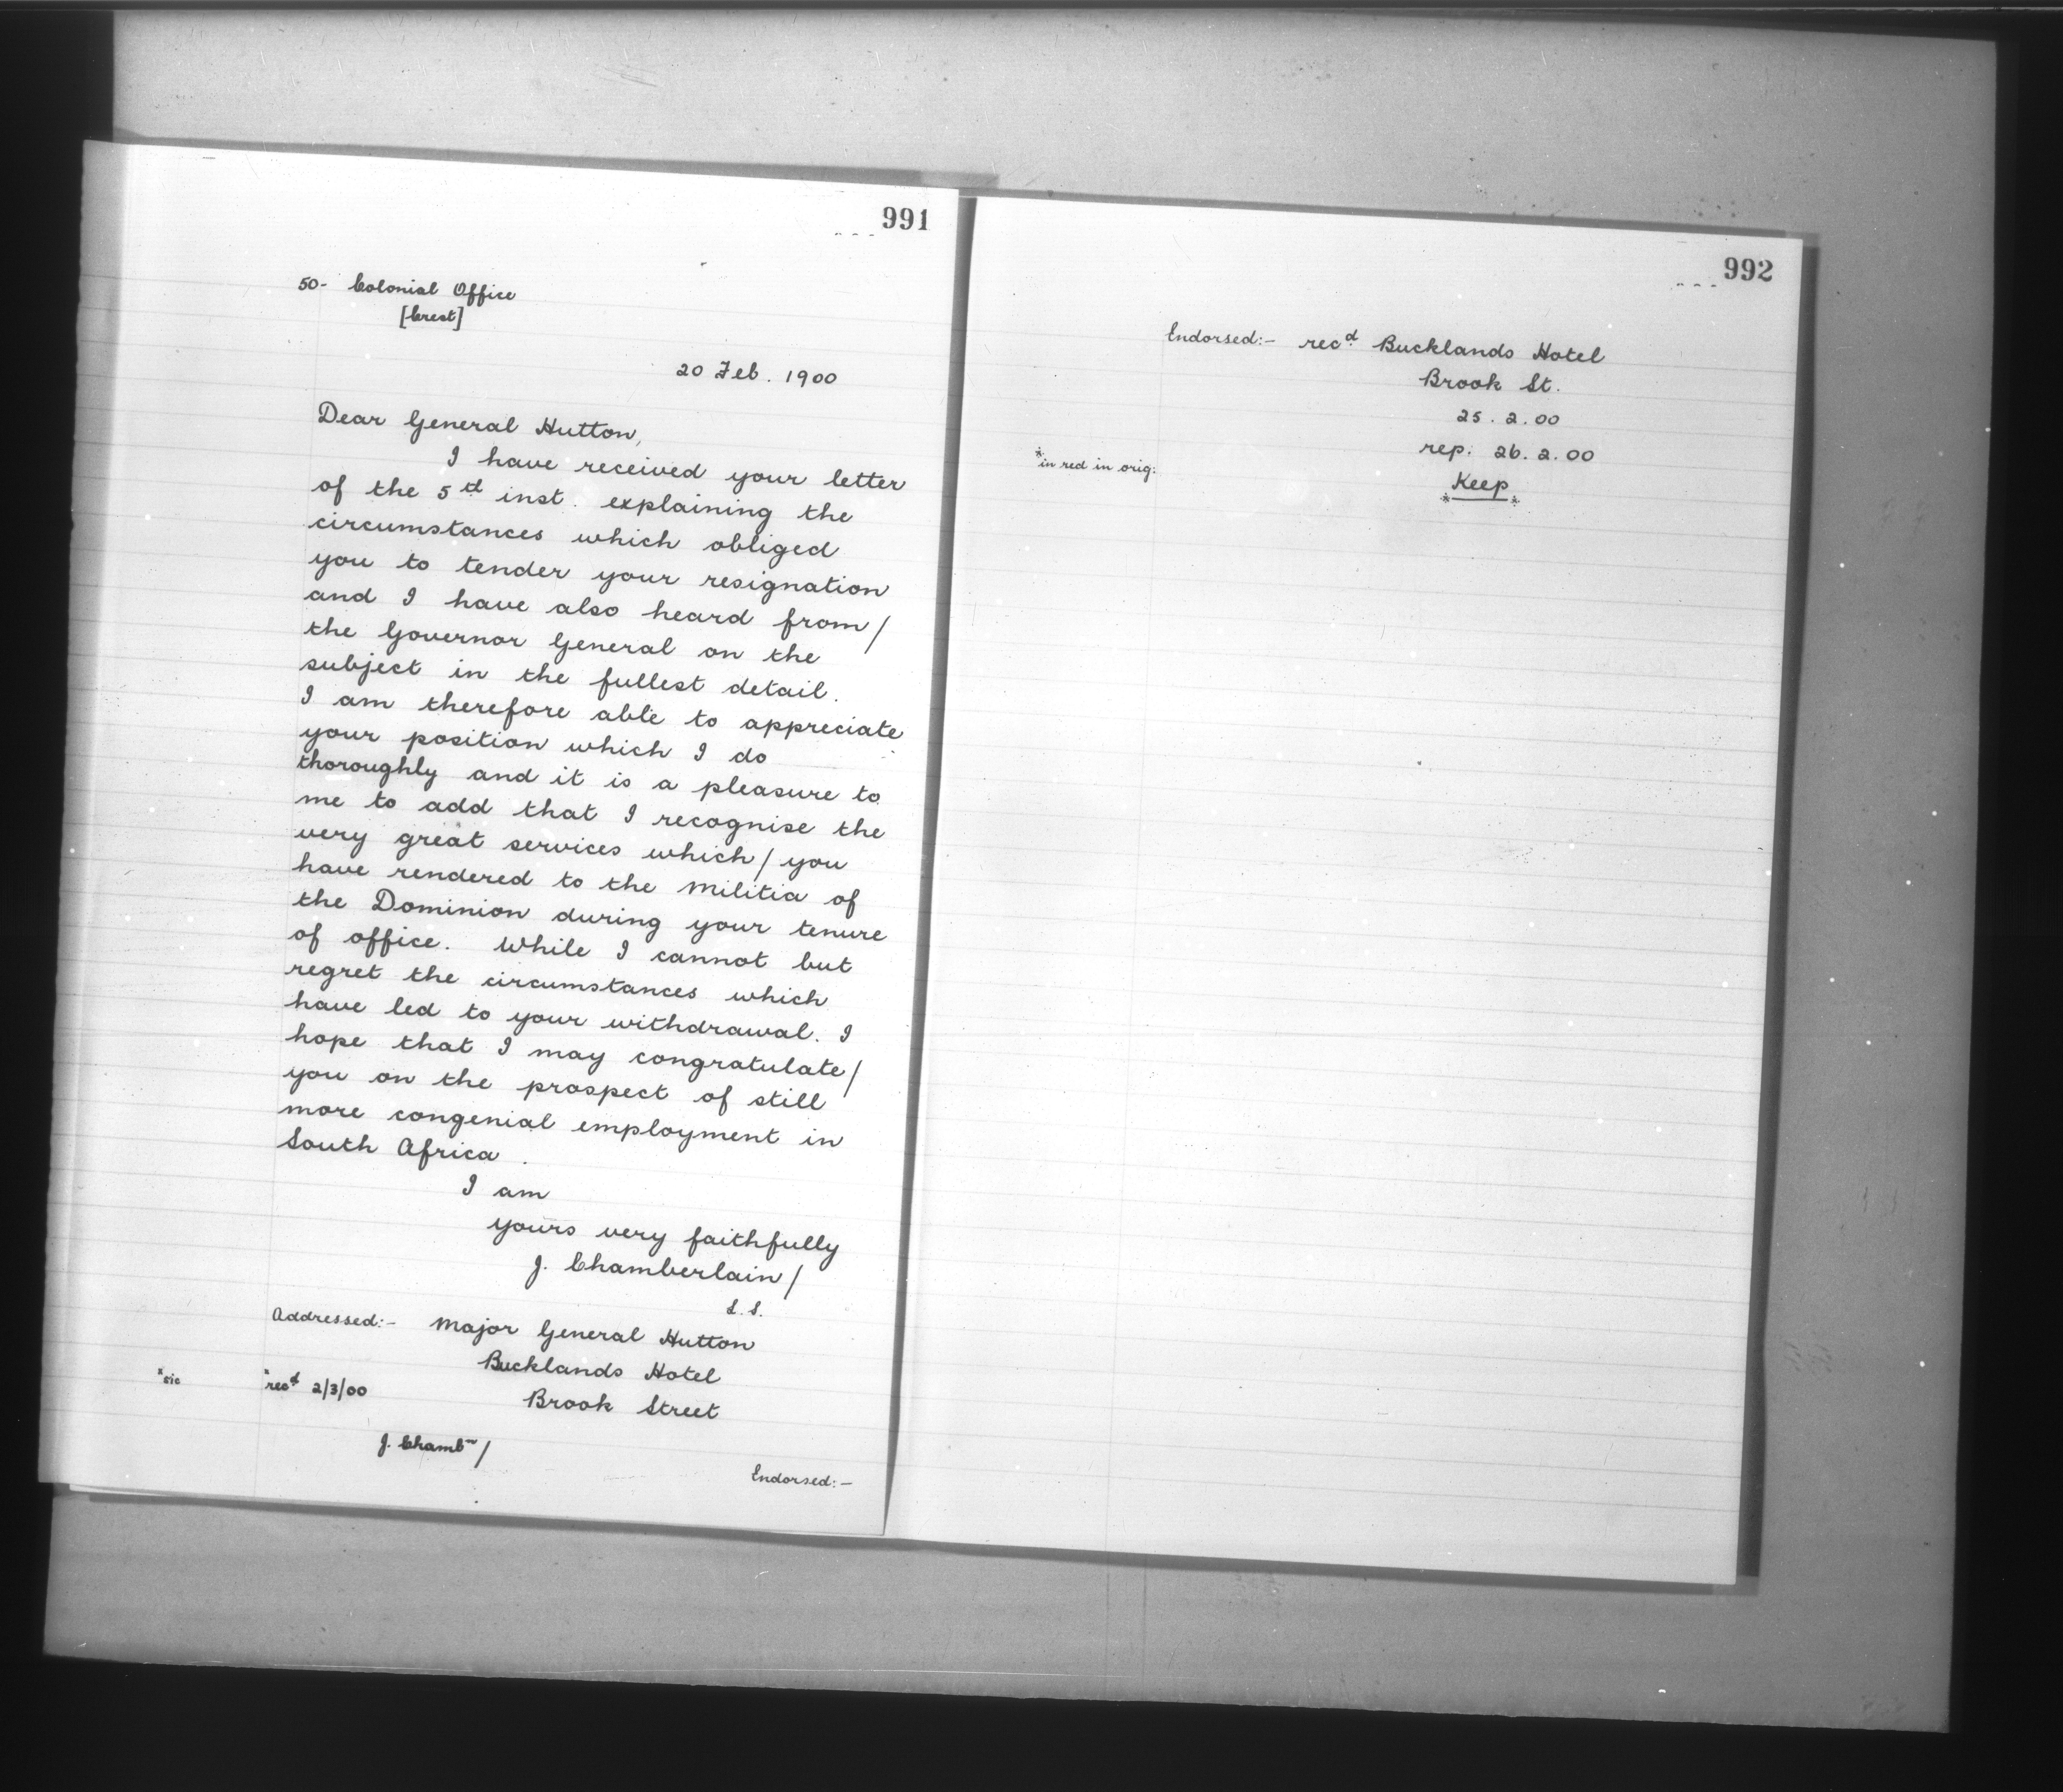 991
50- Colonial Office
[Crest]
20 Feb. 1900
Dear General Hutton,
I have received your letter
of the 5th inst. explaining the
circumstances which obliged
you to tender your resignation
and I have also heard from/
the Governor General on the
subject in the fullest detail.
I am therefore able to appreciate
your position which I do
thoroughly and it is a pleasure to
me to add that I recognise the
very great services which/ you
have rendered to the Militia of
the Dominion during your tenure
of office. While I cannot but
regret the circumstances which
have led to your withdrawal. I
hope that I may congratulate/
you on the prospect of still
more congenial employment in
South Africa.
I am
yours very faithfully
J. Chamberlain/
S.S.
Addressed:- Major General Hutton
Bucklands Hotel
xsic xrecd 2/3/00 Brook Street
J. Chambn/
Endorsed:-
992
Endorsed:- recd Bucklands Hotel
Brook St.
25.2.00
rep: 26.2.00
*in red in orig:
*Keep*